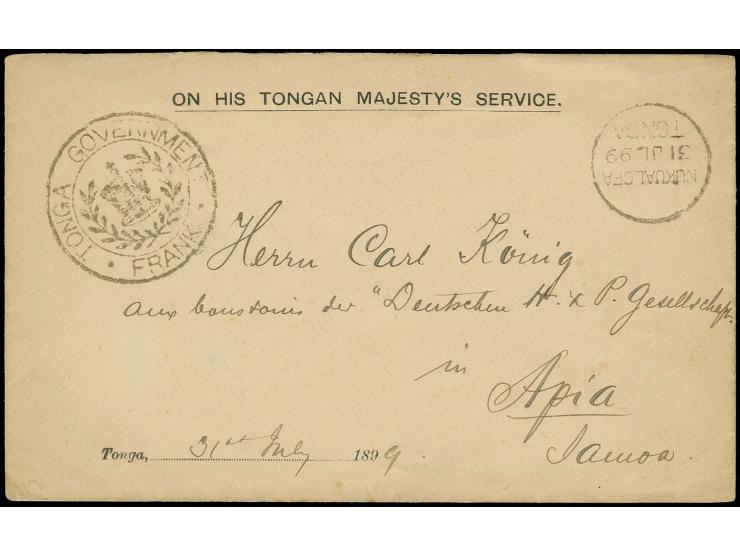 ON HIS TONGAN MAJESTY'S SERVICE.
TONGA GOVERNMENT
• FRANK •
NUKUALOFA
31 JL 99
TONGA
Herrn Carl König
aux bons soins der "Deutschen H. & P. Gesellschaft.
in
Apia
Samoa.
Tonga, 31st July 1899.